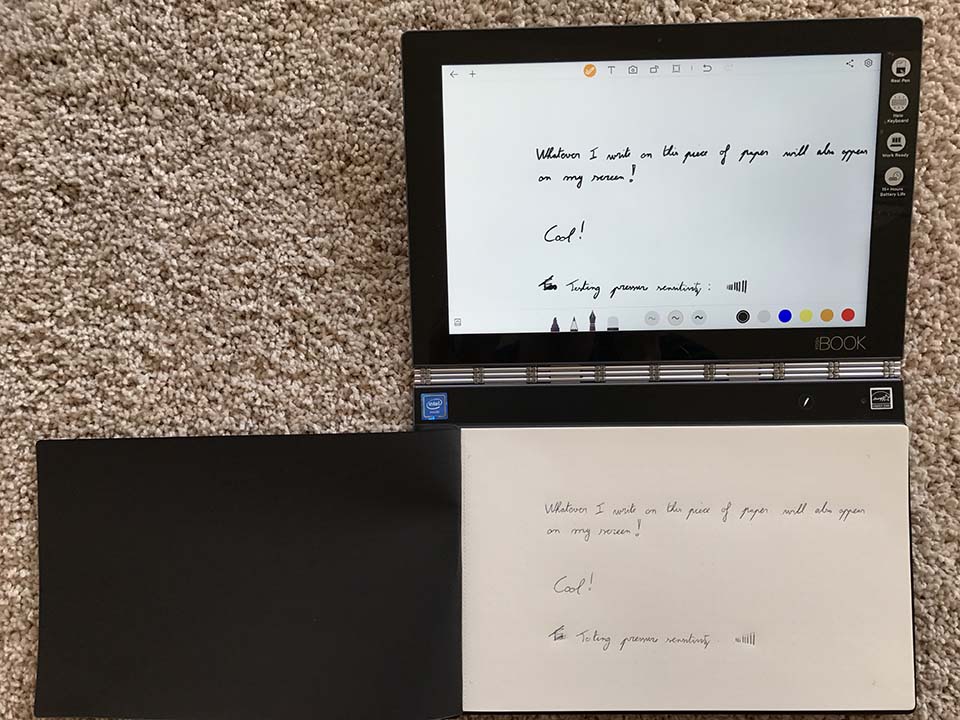 Whatever I write on this piece of paper will also appear
on my screen!
Cool!
Testing pressur sensitivity :
Real Pen
Halo
Keyboard
Work Ready
15+ Hours
Battery Life
YOGA BOOK
intel
inside
Whatever I write on this piece of paper will also appear
on my screen!
Cool!
Testing pressur sensitivity